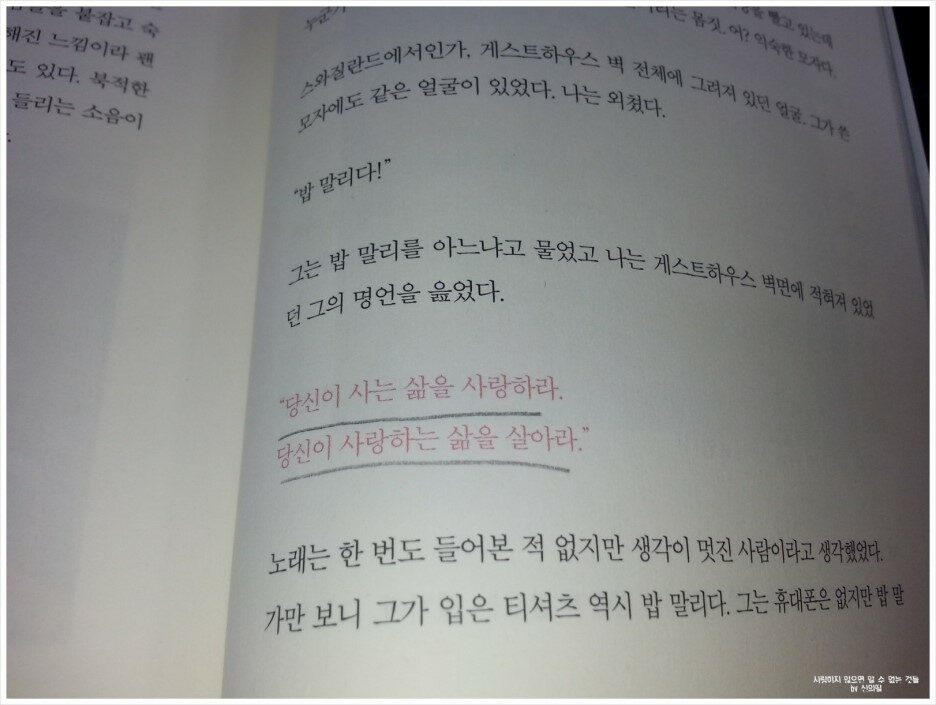 을 붙잡고 숙
해진 느낌이라 괜
도 있다. 북적한
들리는 소음이
빨고 있는데
라는 몸짓. 어? 익숙한 모자다.
스와질란드에서인가, 게스트하우스 벽 전체에 그려져 있던 얼굴. 그가 쓴
모자에도 같은 얼굴이 있었다. 나는 외쳤다.
“밥 말리다!”
그는 밥 말리를 아느냐고 물었고 나는 게스트하우스 벽면에 적혀져 있었
던 그의 명언을 읊었다.
“당신이 사는 삶을 사랑하라.
당신이 사랑하는 삶을 살아라.”
노래는 한 번도 들어본 적 없지만 생각이 멋진 사람이라고 생각했었다.
가만 보니 그가 입은 티셔츠 역시 밥 말리다. 그는 휴대폰은 없지만 밥 말
사랑하지 않으면 알 수 없는 것들
by 신의필